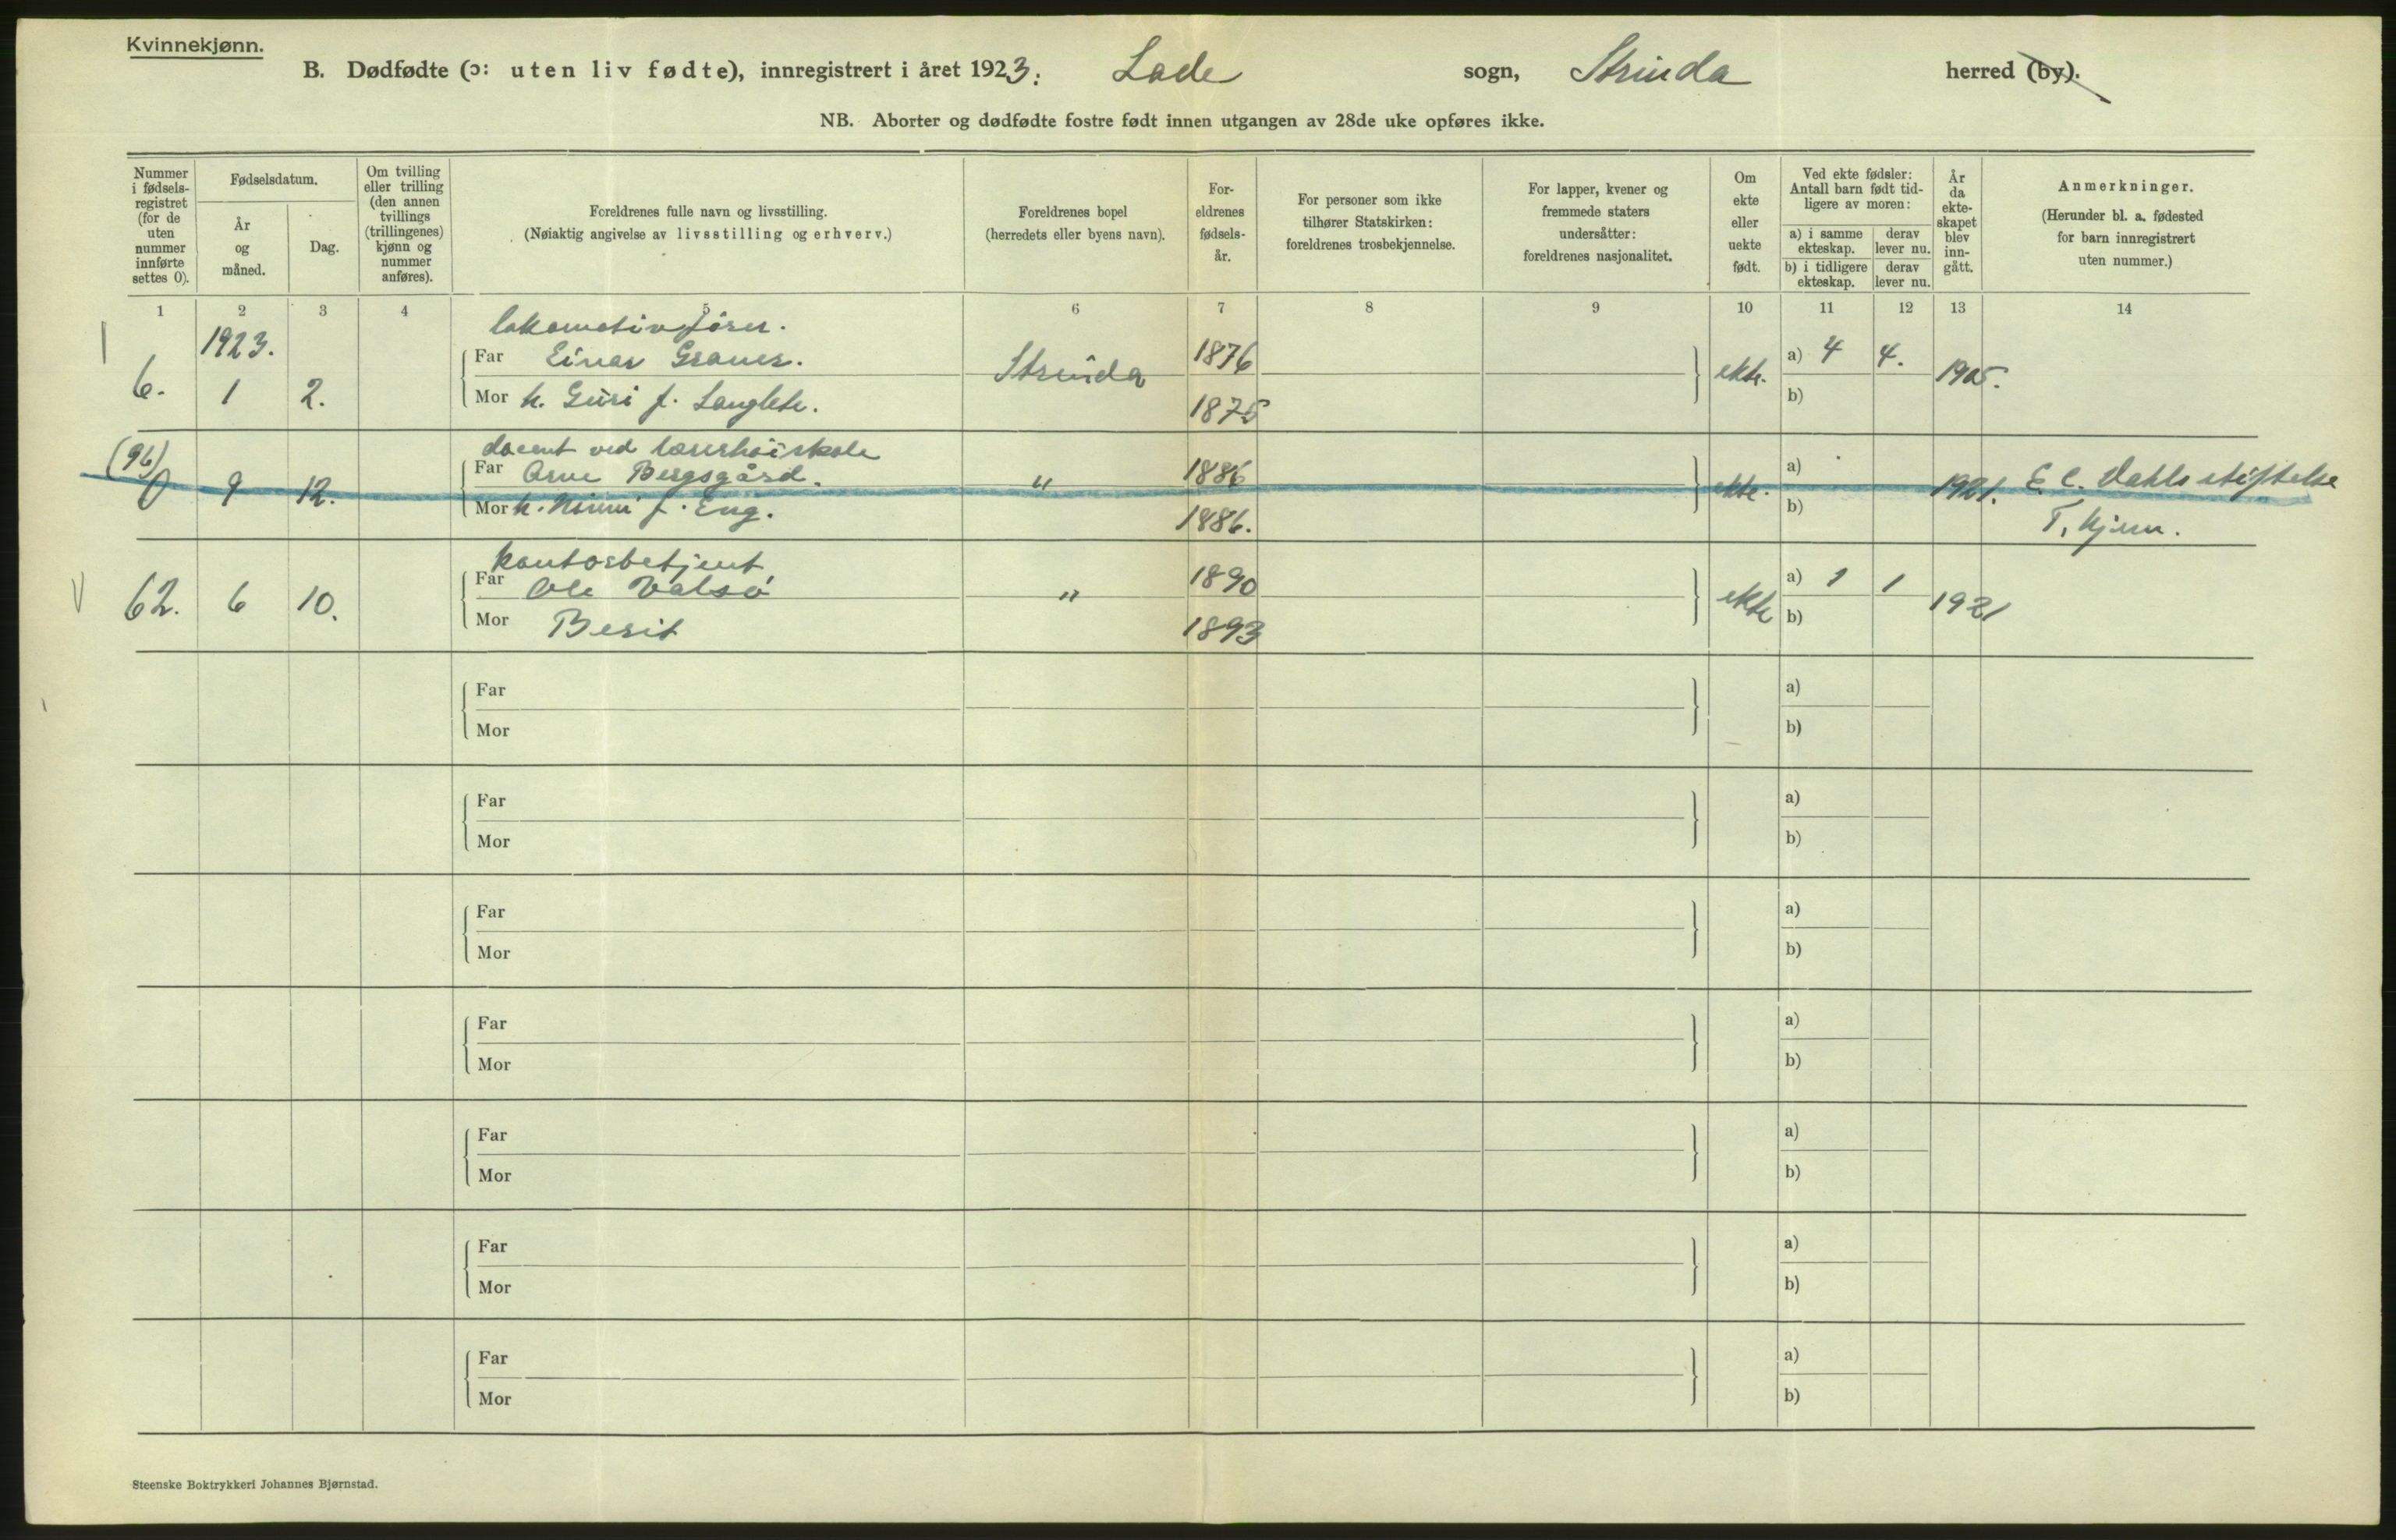 Kvinnekjønn.
B. Dødfødte (ɔ: uten liv fødte), innregistrert i året 1923. Lade sogn, Strinda herred (by).
NB. Aborter og dødfødte fostre født innen utgangen av 28de uke opføres ikke.
Nummer i fødsels-registret (for de uten nummer innførte settes 0).
Fødselsdatum.
År og måned.
Dag.
Om tvilling eller trilling (den annen tvillings (trillingenes) kjønn og nummer anføres).
Foreldrenes fulle navn og livsstilling.
(Nøiaktig angivelse av livsstilling og erhverv.)
Foreldrenes bopel
(herredets eller byens navn).
For-eldrenes fødsels-år.
For personer som ikke tilhører Statskirken: foreldrenes trosbekjennelse.
For lapper, kvener og fremmede staters undersåtter: foreldrenes nasjonalitet.
Om ekte eller uekte født.
Ved ekte fødsler: Antall barn født tid-ligere av moren:
a) i samme ekteskap.
derav lever nu.
b) i tidligere ekteskap.
derav lever nu.
År da ekte-skapet blev inn-gått.
Anmerkninger.
(Herunder bl. a. fødested for barn innregistrert uten nummer.)
1 2 3 4 5 6 7 8 9 10 11 12 13 14
lokomotivfører.
1923.
Far Einar Graner. 1876 a) 4 4.
6. 1 2. Strinda ekte. 1905.
Mor h. Guri f. Langlete. 1875 b)
docent ved lærerhøiskole
(96) Far Arne Bergsgård. 1886 a)
0 9 12. " ekte. 1921. E. C. Dahls stiftelse
Mor h. Ninni f. Eng. 1886. b)
T.hjem.
kontorbetjent
Far Ole Valsø 1890 a) 1 1
62. 6 10. " ekte 1921
Mor Berit 1893 b)
Far a)
Mor b)
Far a)
Mor b)
Far a)
Mor b)
Far a)
Mor b)
Far a)
Mor b)
Far a)
Mor b)
Far a)
Mor b)
Steenske Boktrykkeri Johannes Bjørnstad.